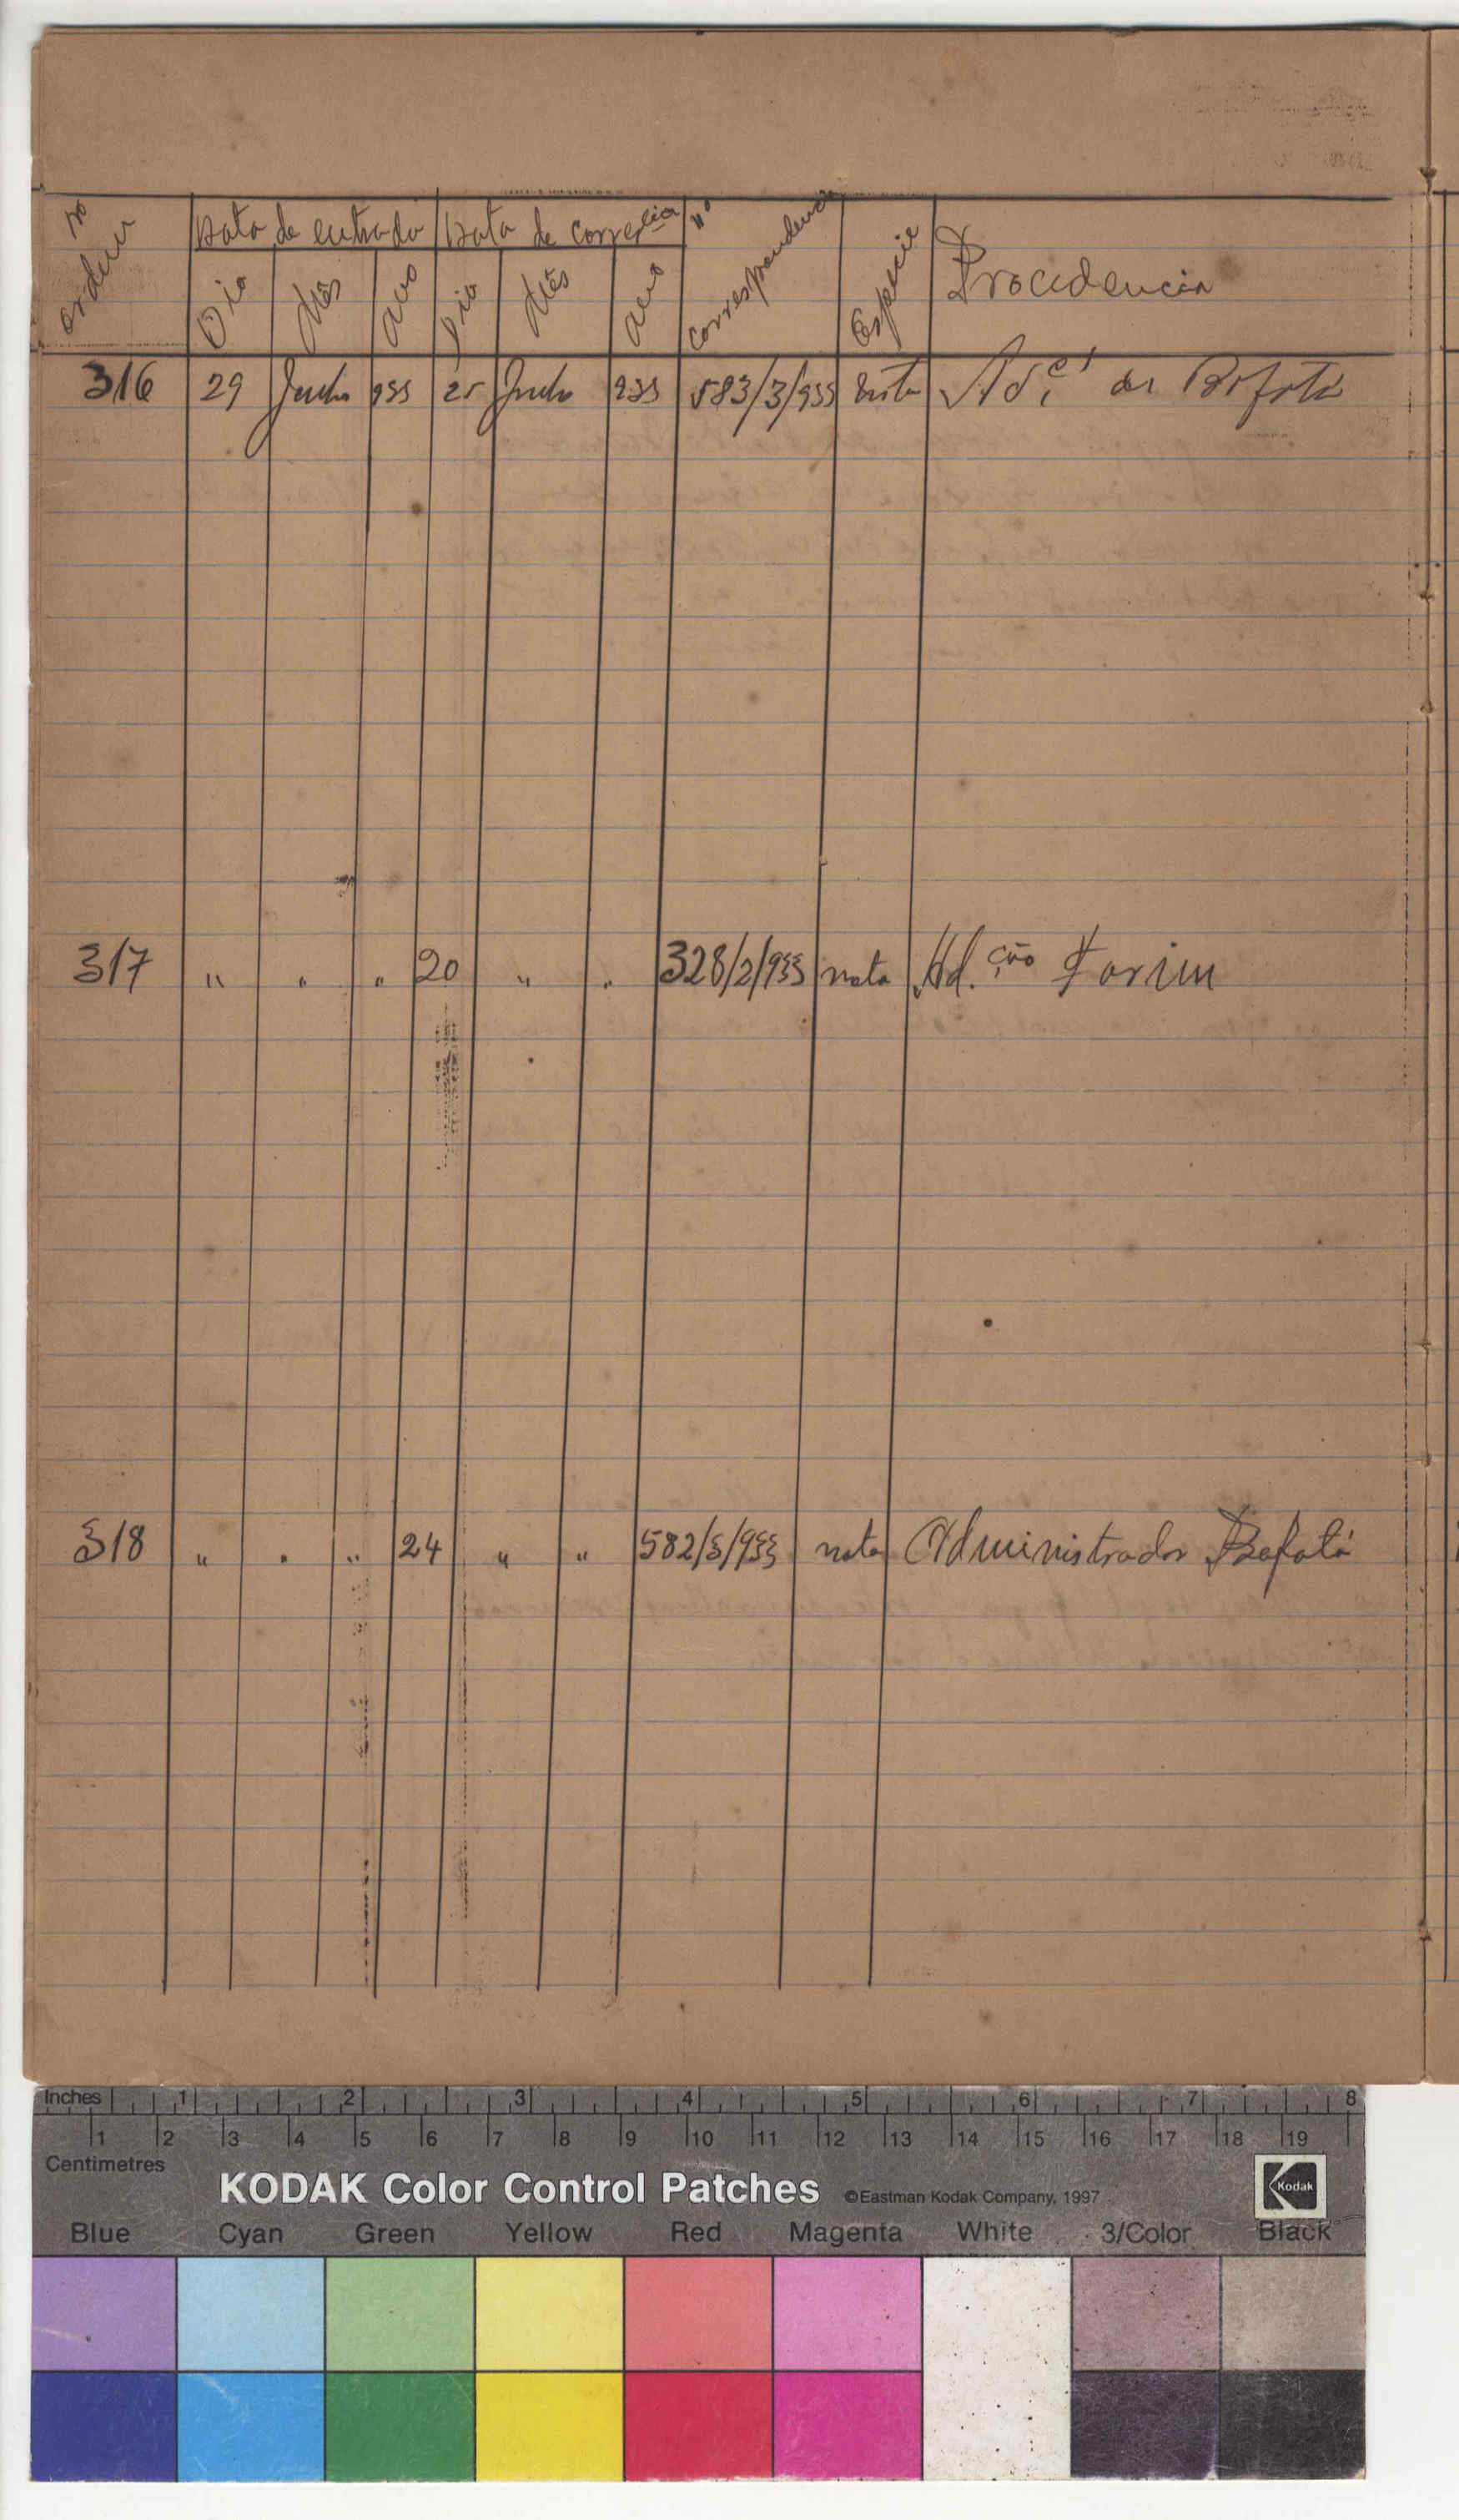 Nº ordem Data de entrada Data de corre.cia nº correspondencia Especie Procedencia
Dia Mês Ano Dia Mês Ano
316 29 Junho 933 25 Junho 933 583/3/933 Nota Ad. de Bafatá
317 " " " 20 " " 328/2/933 nota Ad.ção Farim
318 " " " 24 " " 582/3/933 nota Administrador Bafatá
Inches 1 2 3 4 5 6 7 8
1 2 3 4 5 6 7 8 9 10 11 12 13 14 15 16 17 18 19
Centimetres
KODAK Color Control Patches ©Eastman Kodak Company, 1997 Kodak
Blue Cyan Green Yellow Red Magenta White 3/Color Black